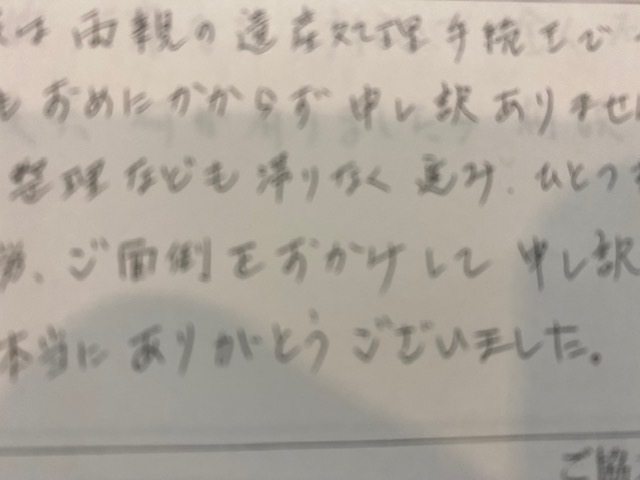 は両親の遺産処理手続きで
もおめにかからず申し訳ありませ
整理なども滞りなく進み、ひとつ
、ご面倒をおかけして申し訳
本当にありがとうございました。
ご協